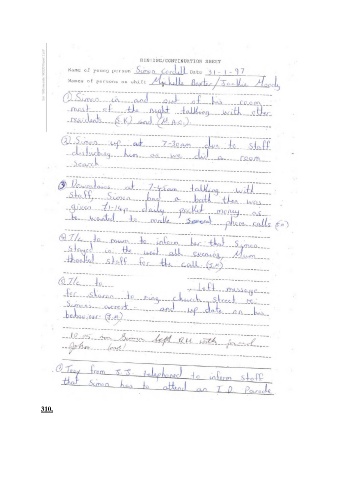 SIGNING/CONTINUATION SHEET
Name of young person Simon Cordell Date 31-1-97
Names of persons on shift
① Simon in and out of his room
most of the night talking with other
residents
② Simon up at 7-30am due to staff
disturbing him as we did a room
search
③ Downstairs at 7-45am talking with
staff, Simon had a bath then was
given daily pocket money as
he wanted to make several phone calls
④ T/c to mum to inform her that Simon
stayed in the unit all evening, Mum
thanked staff for the call
⑤ T/c to left message
for Sharon to ring church street re:
Simons and up date on his
behaviour
10.05 am Simon left R.H with friend
John
⑥ from telephoned to inform staff
that Simon has to attend an I.D Parade
310.